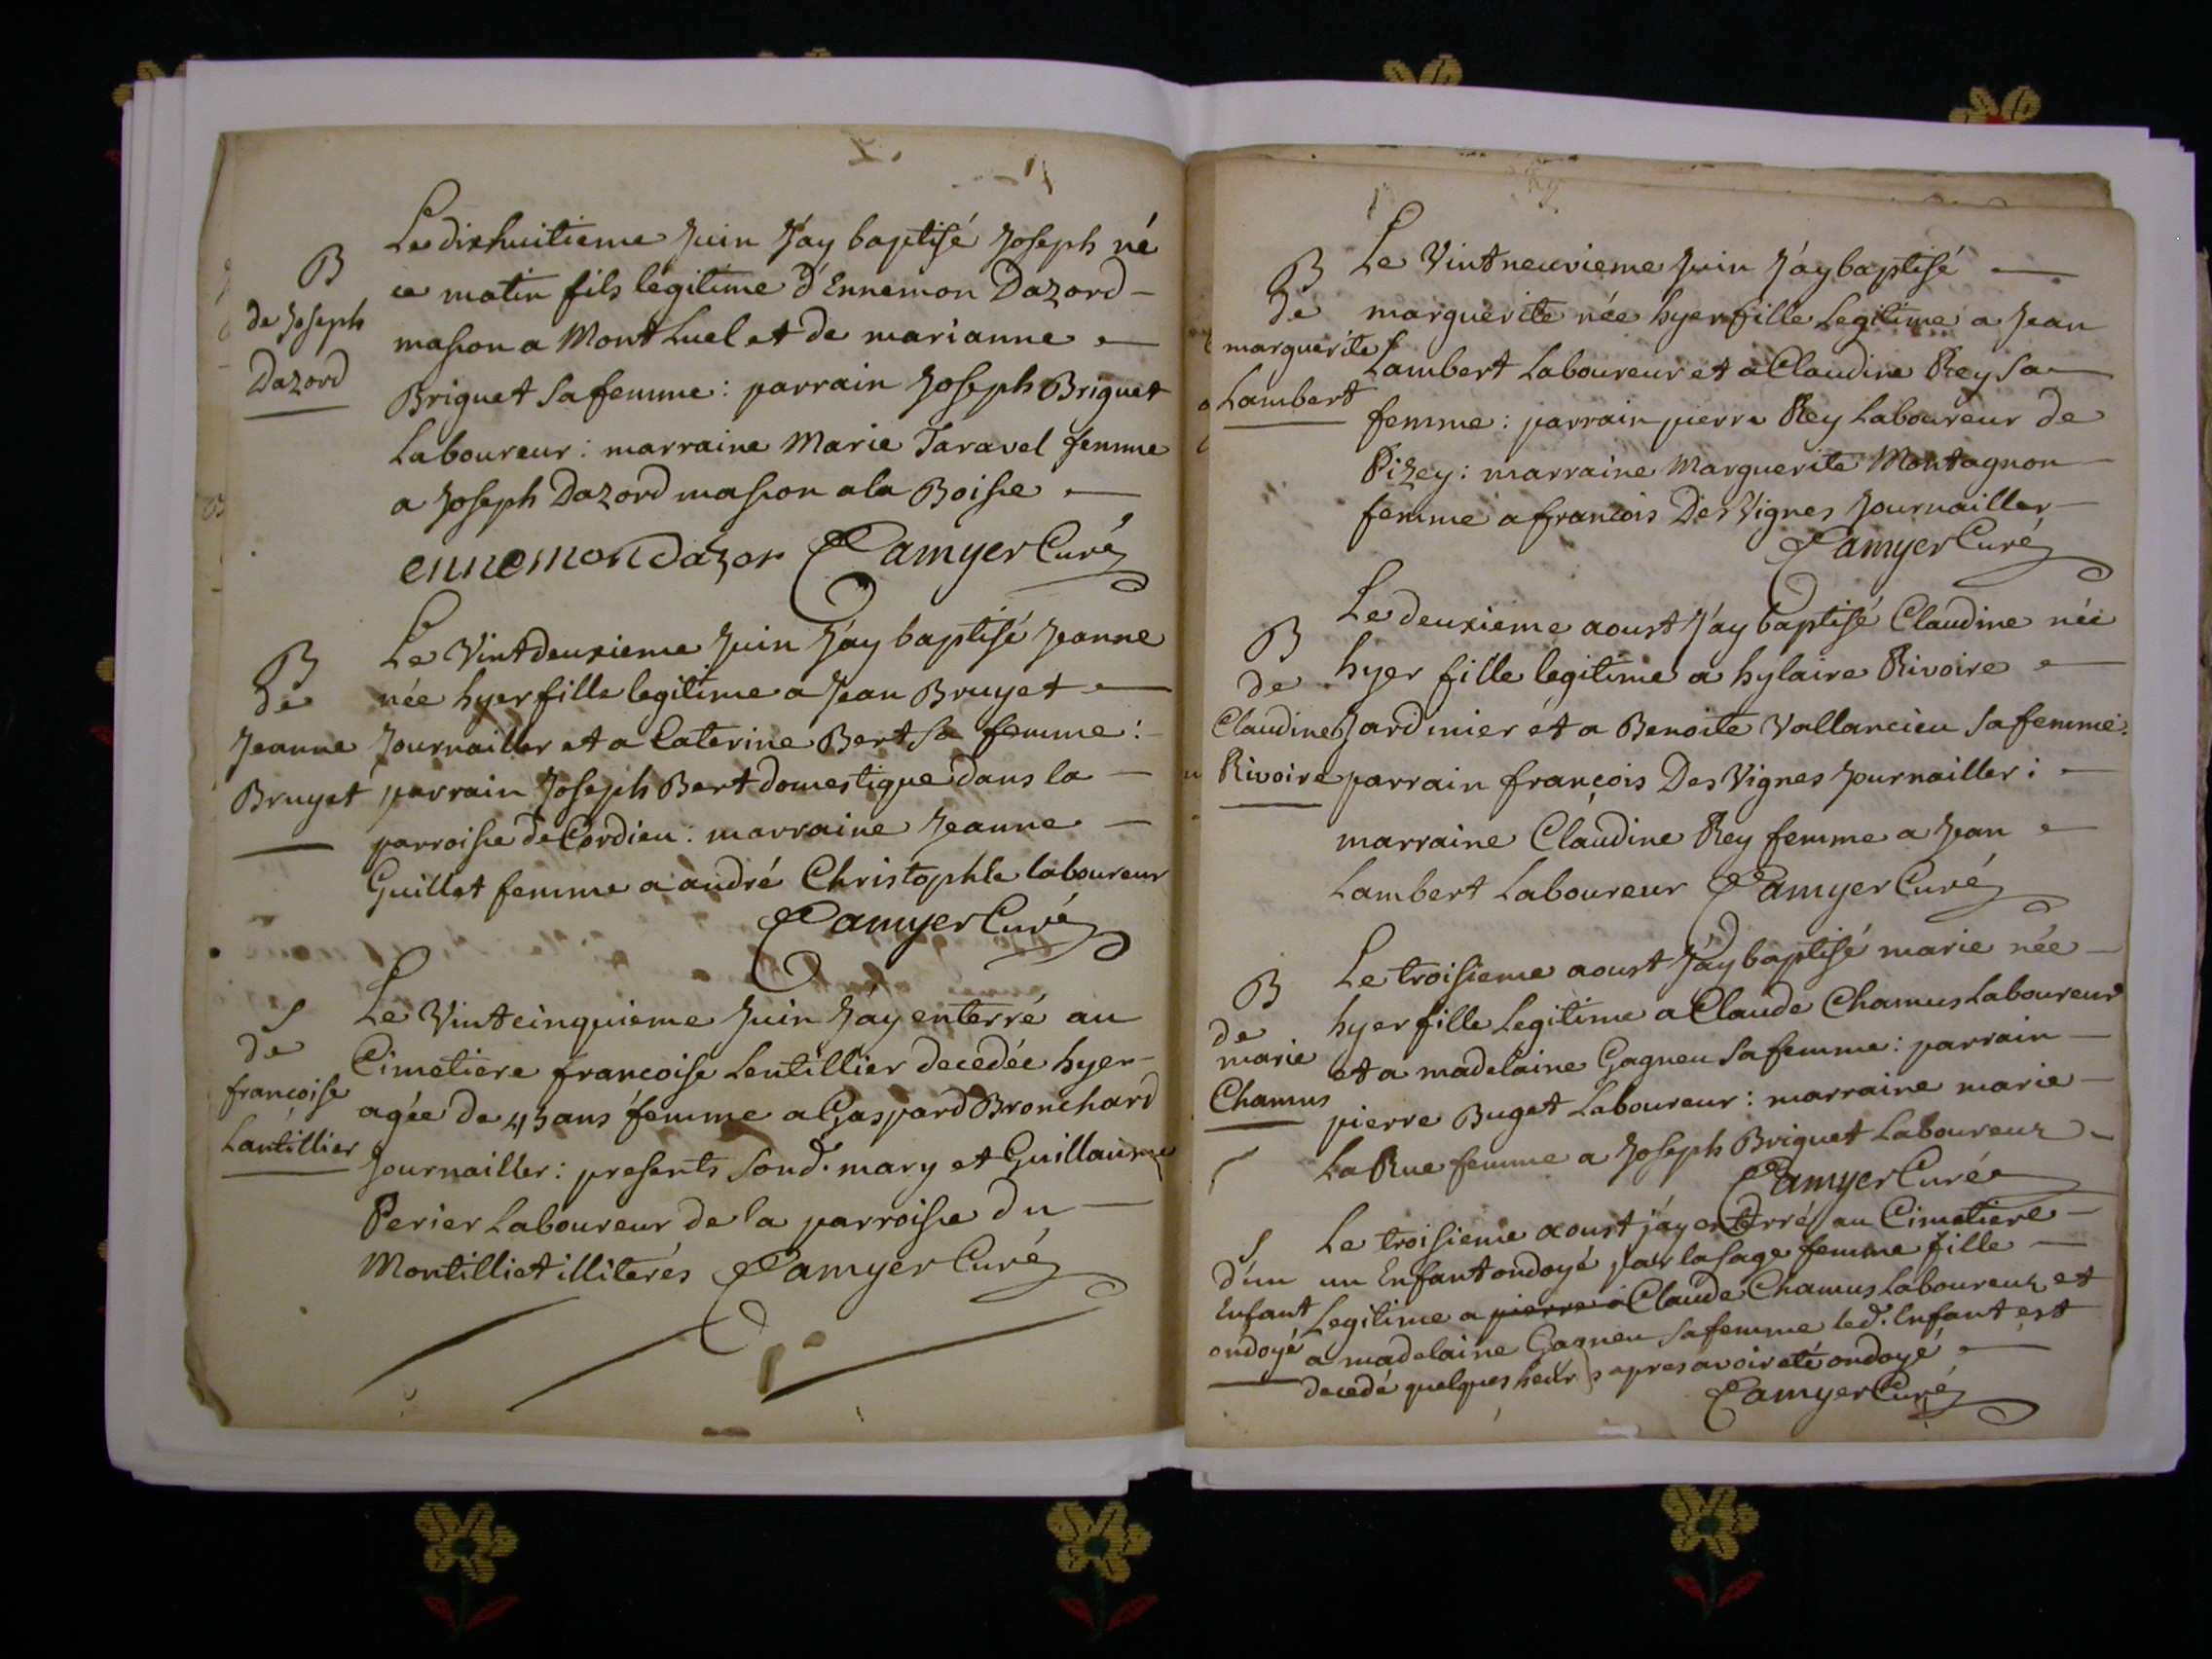 B
de Joseph
Dazord
Le dixhuitieme Juin J'ay baptisé Joseph né
ce matin fils légitime d'Ennemon Dazord
masson a Mont Luel et de marianne
Briguet sa femme : parrain Joseph Briguet
Laboureur : marraine Marie Taravel femme
a Joseph Dazord masson a la Boisse
ennemon dazor Camyer Curé
B
de
Jeanne
Bruyet
Le Vintdeuxieme Juin J'ay baptisé Jeanne
née hyer fille legitime a Jean Bruyet
Journailler et a Caterine Bert sa femme :
parrain Joseph Bert domestique dans la
parroisse de Cordieu : marraine Jeanne
Guillet femme a andré Christophle laboureur
Camyer Curé
S
de
francoise
Lantillier
Le Vintcinquieme Juin J'ay enterré au
Cimetiere francoise Lentillier decedée hyer
agée de 45 ans femme a Gaspard Bronchard
Journailler : presents sond. mary et Guillaume
Perier Laboureur de la parroisse du
Montilliet illiterés Camyer Curé
B
de
marguerite
Lambert
Le Vintneuvieme Juin J'ay baptisé
marguerite née hyer fille Legitime a Jean
Lambert Laboureur et a Claudine Rey sa
femme : parrain pierre Rey Laboureur de
Pizey : marraine Marguerite Montagnon
femme a francois Des Vignes Journailler
Camyer Curé
B
de
Claudine
Rivoire
Le deuxieme aoust J'ay baptisé Claudine née
hyer fille legitime a hylaire Rivoire
Jardinier et a Benoite Vallancieu sa femme :
parrain françois Des Vignes Journailler :
marraine Claudine Rey femme a Jean
Lambert Laboureur Camyer Curé
B
de
marie
Chamus
Le troisieme aoust J'ay baptisé marie née
hyer fille Legitime a Claude Chamus Laboureur
et a madelaine Gagneu sa femme : parrain
pierre Buget Laboureur : marraine marie
La Rue femme a Joseph Briguet Laboureur
Camyer Curé
S
d'un
Enfant
ondoyé
Le troisieme aoust j'ay enterré au Cimetiere
un Enfant ondoyé par la sage femme fille
Legitime a pierre a Claude Chamus Laboureur et
a madelaine Gagneu sa femme led. Enfant est
decedé quelques heures apres avoir eté ondoyé
Camyer Curé